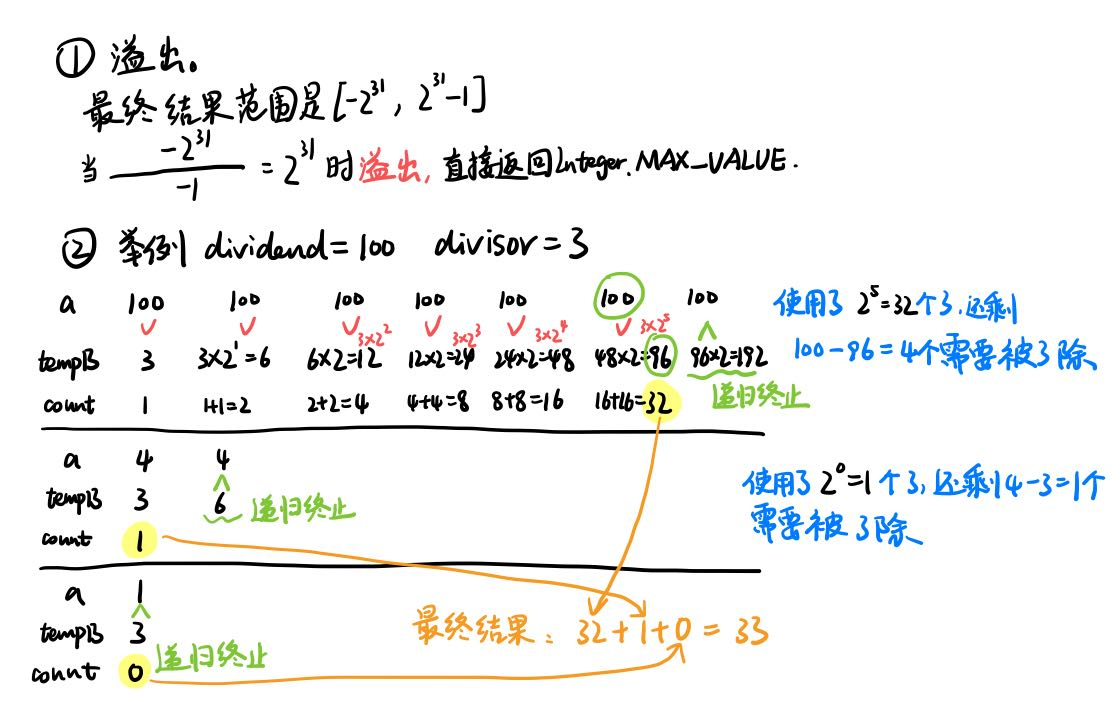 ① 溢出。
最终结果范围是[-2³¹, 2³¹-1]
当 -2³¹/-1 = 2³¹ 时溢出, 直接返回Integer.MAX_VALUE.
② 举例 dividend=100 divisor=3
a 100 100 100 100 100 100 100
3×2² 3×2³ 3×2⁴ 3×2⁵
tempB 3 3×2¹=6 6×2=12 12×2=24 24×2=48 48×2=96 96×2=192
count 1 1+1=2 2+2=4 4+4=8 8+8=16 16+16=32 递归终止
使用了 2⁵=32个3,还剩
100-96=4个需要被3除
a 4 4
tempB 3 6 递归终止
count 1
使用了 2⁰=1个3,还剩4-3=1个
需要被3除
a 1
tempB 3
count 0 递归终止
最终结果: 32+1+0=33